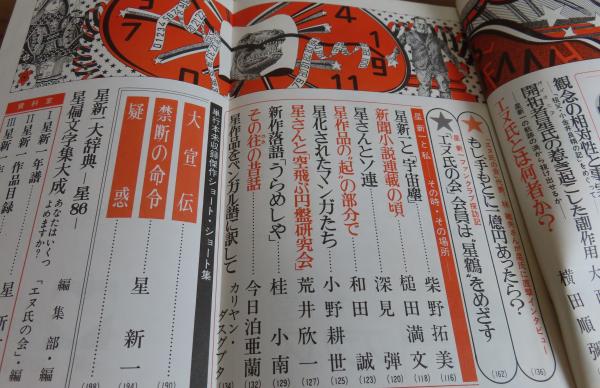 観念の相対性と事
開拓者星氏の惹き起こした副作用
横田順彌
エヌ氏とは何者か?
(136)
もし手もとに一億円あったら?
★星新一ファンクラブ探訪記
★「エヌ氏の会」会員は「星鶴」をめざす
(162)
星新一と私——その時・その場所
星新一と「宇宙塵」
柴野拓美
(116)
新聞小説連載の頃
槌田満文
(118)
星さんとソ連
深見弾
(120)
星作品の“起”の部分で
和田誠
(123)
星化されたマンガたち
小野耕世
(125)
星さんと「空飛ぶ円盤研究会」
荒井欣一
(127)
新作落語「うらめしや」
桂小南
(129)
その往の昔話
今日泊亜蘭
(132)
星作品をベンガル語に訳して
カリヤン・ダスグプタ
(134)
単行本未収録傑作ショート・ショート集
大宣伝
(190)
禁断の命令
星新一
(194)
疑惑
(198)
星新一大辞典——星86——
編集部・編
星倫文字集大成
あなたはいくつよめますか?
「エヌ氏の会」・編
資料室
I 星新一年譜
II 星新一作品目録
III 星新一
星新
4
1
9
11
0
7